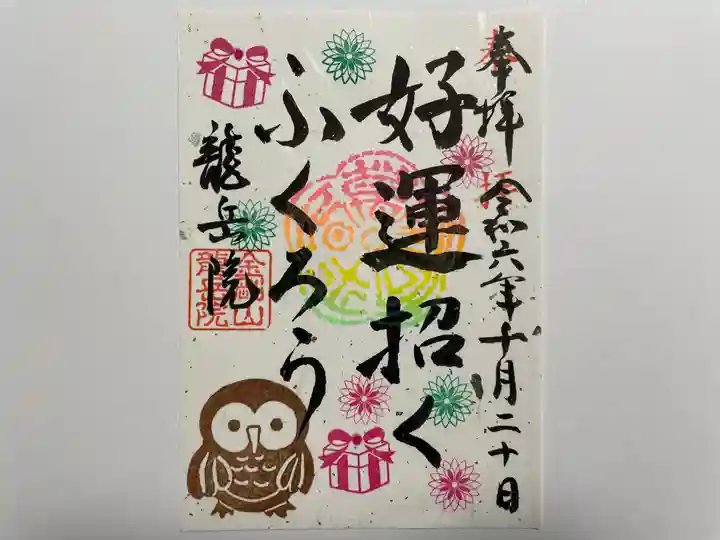 奉拝 令和六年十月二十日
好運招く
ふくろう
龍岳院
金剛山
龍岳院